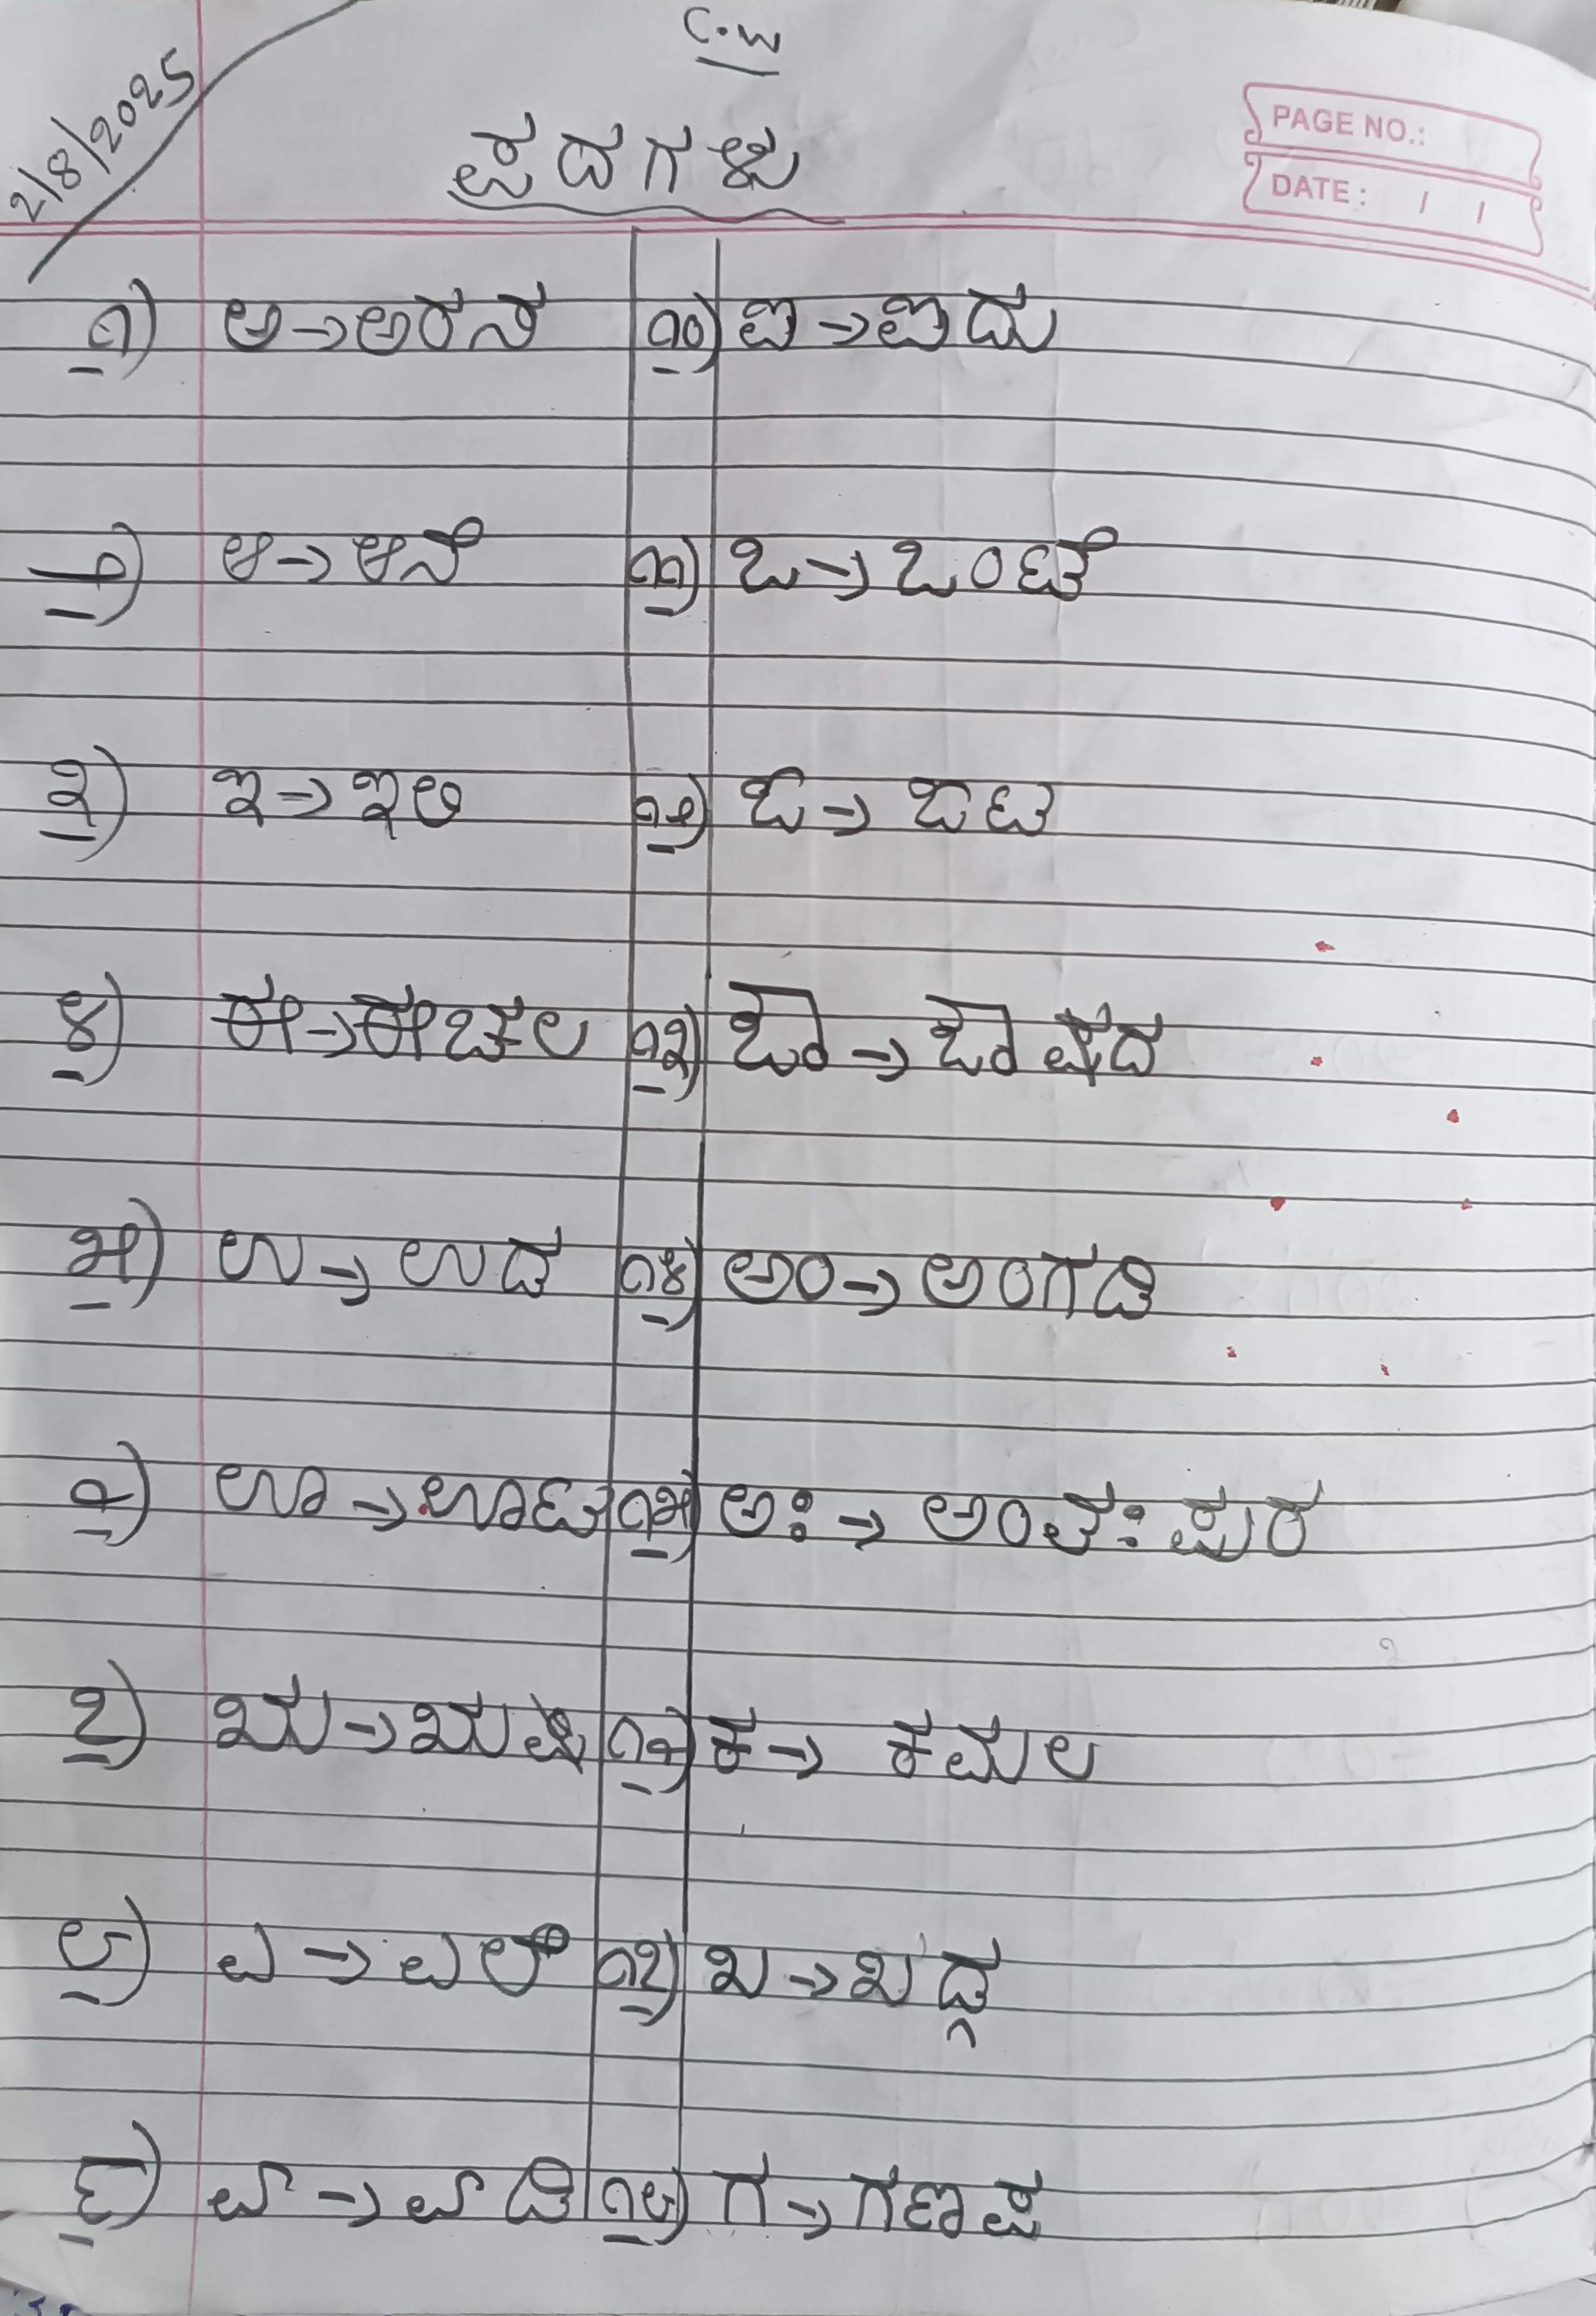 C.W
2/8/2025
ಪದಗಳು
PAGE NO.:
DATE: / /
೧) ಅ→ಅರಸ
೨) ಆ→ಆನೆ
೩) ಇ→ಇಲಿ
೪) ಈ→ಈಚಲ
೫) ಉ→ಉದ
೬) ಊ→ಊಟ
೭) ಋ→ಋಷಿ
೮) ಎ→ಎಲೆ
೯) ಏ→ಏಡಿ
೧೦) ಐ→ಐದು
೧೧) ಒ→ಒಂಟೆ
೧೨) ಓ→ಓಟ
೧೩) ಔ→ಔಷದ
೧೪) ಅಂ→ಅಂಗಡಿ
೧೫) ಅಃ→ಅಂತಃಪುರ
೧೬) ಕ→ಕಮಲ
೧೭) ಖ→ಖಡ್ಗ
೧೮) ಗ→ಗಣಪ